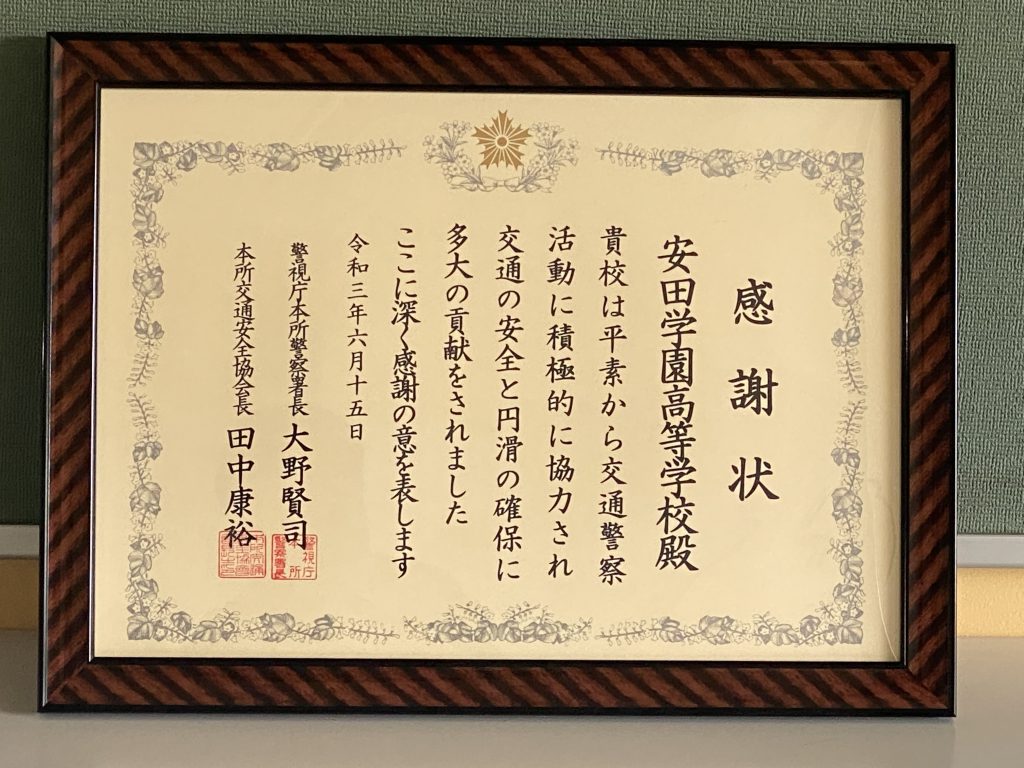 感謝状
安田学園高等学校殿
貴校は平素から交通警察
活動に積極的に協力され
交通の安全と円滑の確保に
多大の貢献をされました
ここに深く感謝の意を表します
令和三年六月十五日
警視庁本所警察署長 大野賢司
本所交通安全協会長 田中康裕
警視庁
本所
警察署長